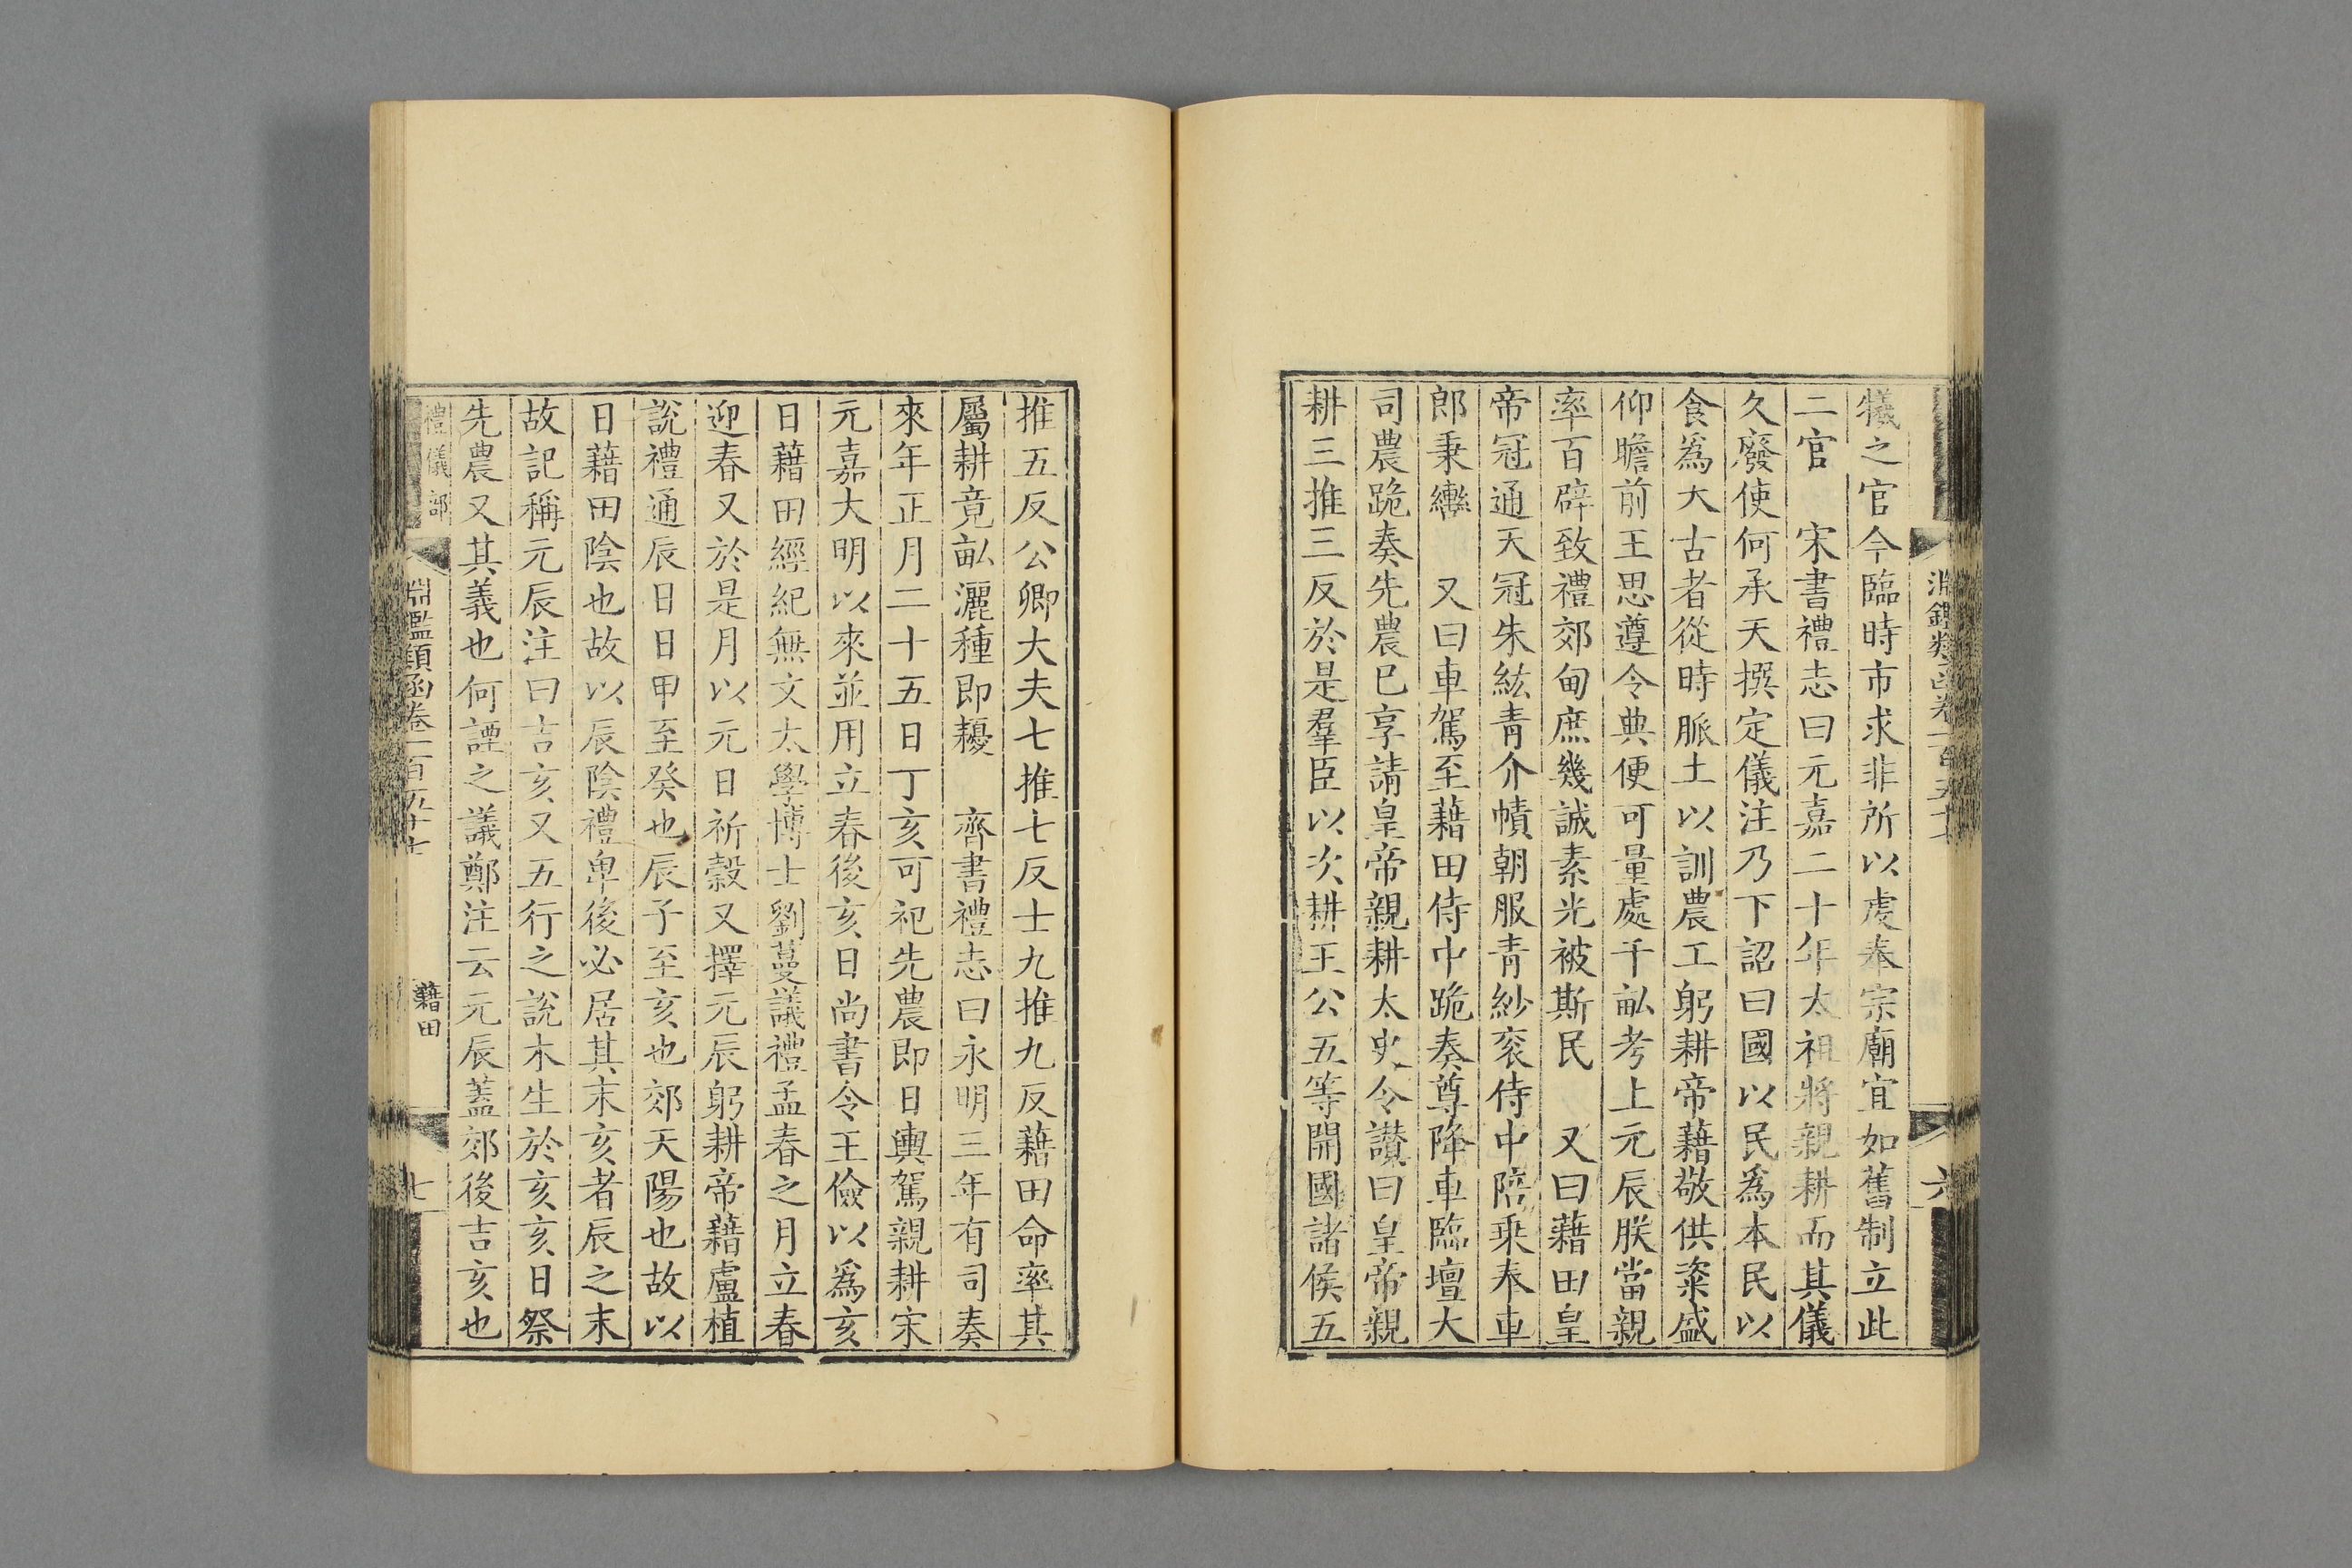 淵鑑類函卷一百五十七
六
犧之官今臨時市求非所以虔奉宗廟宜如舊制立此
二官　宋書禮志曰元嘉二十年太祖將親耕而其儀
久廢使何承天撰定儀注乃下詔曰國以民爲本民以
食爲大古者從時脈土以訓農工躬耕帝藉敬供粢盛
仰瞻前王思遵令典便可量處千畝考上元辰朕當親
率百辟致禮郊甸庶幾誠素光被斯民　又曰藉田皇
帝冠通天冠朱紘青介幘朝服青紗袞侍中陪乗奉車
郎秉轡　又曰車駕至藉田侍中跪奏尊降車臨壇大
司農跪奏先農已享請皇帝親耕太史令讃曰皇帝親
耕三推三反於是羣臣以次耕王公五等開國諸侯五
推五反公卿大夫七推七反士九推九反藉田命率其
屬耕竟畝灑種即耰　齊書禮志曰永明三年有司奏
來年正月二十五日丁亥可祀先農即日輿駕親耕宋
元嘉大明以來並用立春後亥日尚書令王儉以爲亥
日藉田經紀無文太學博士劉蔓議禮孟春之月立春
迎春又於是月以元日祈穀又擇元辰躬耕帝藉盧植
說禮通辰日日甲至癸也辰子至亥也郊天陽也故以
日藉田陰也故以辰陰禮卑後必居其末亥者辰之末
故記稱元辰注曰吉亥又五行之說木生於亥亥日祭
先農又其義也何諲之議鄭注云元辰蓋郊後吉亥也
禮儀部
淵鑑類函卷一百五十七
藉田
七